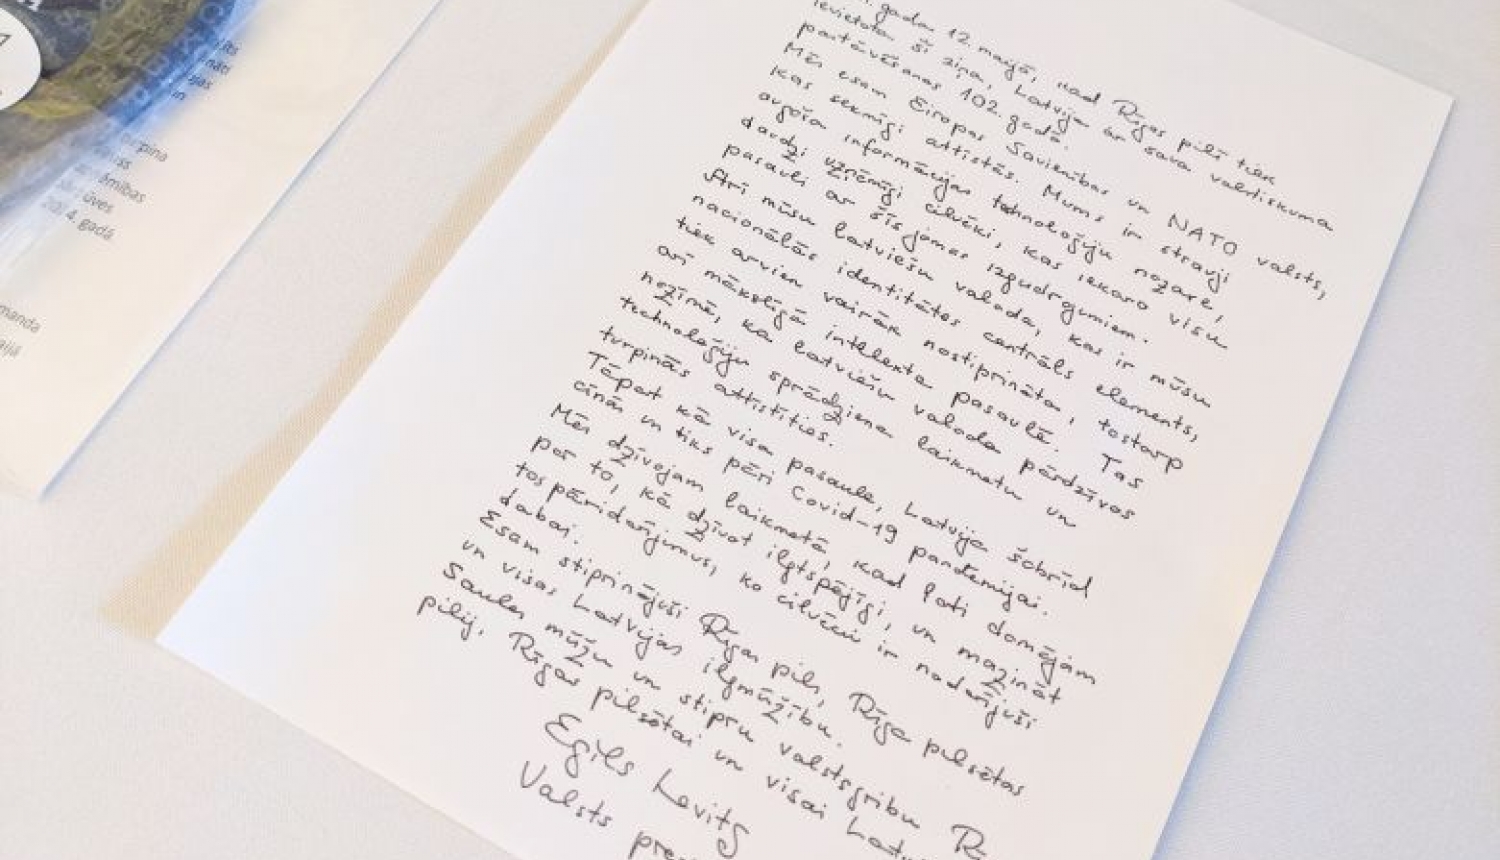 gada 12. maijā, kad Rīgas pilī tiek
ievietota šī ziņa, Latvija ir sava valstiskuma
pastāvēšanas 102. gadā.
Mēs esam Eiropas Savienības un NATO valsts,
kas sekmīgi attīstās. Mums ir strauji
augoša informācijas tehnoloģiju nozare,
daudzi uzņēmīgi cilvēki, kas iekaro visu
pasauli ar šīs jomas izgudrojumiem.
Arī mūsu latviešu valoda, kas ir mūsu
nacionālās identitātes centrāls elements,
tiek arvien vairāk nostiprināta, tostarp
arī mākslīgā intelekta pasaulē. Tas
nozīmē, ka latviešu valoda pārdzīvos
tehnoloģiju sprādziena laikmetu un
turpinās attīstīties.
Tāpat kā visa pasaule, Latvija šobrīd
cīnās un tiks pāri Covid-19 pandēmijai.
Mēs dzīvojam laikmetā, kad ļoti domājam
par to, kā dzīvot ilgtspējīgi, un mazināt
tos pāridarījumus, ko cilvēki ir nodarījuši
dabai.
Esam stiprinājuši Rīgas pili, Rīgas pilsētas
un visas Latvijas ilgmūžību.
Saules mūžu un stipru valstsgribu R
pilij, Rīgas pilsētai un visai Latv
Egils Levits
Valsts pre
turpina
ss.
āmības
ūves
4. gadā.
manda
aijā